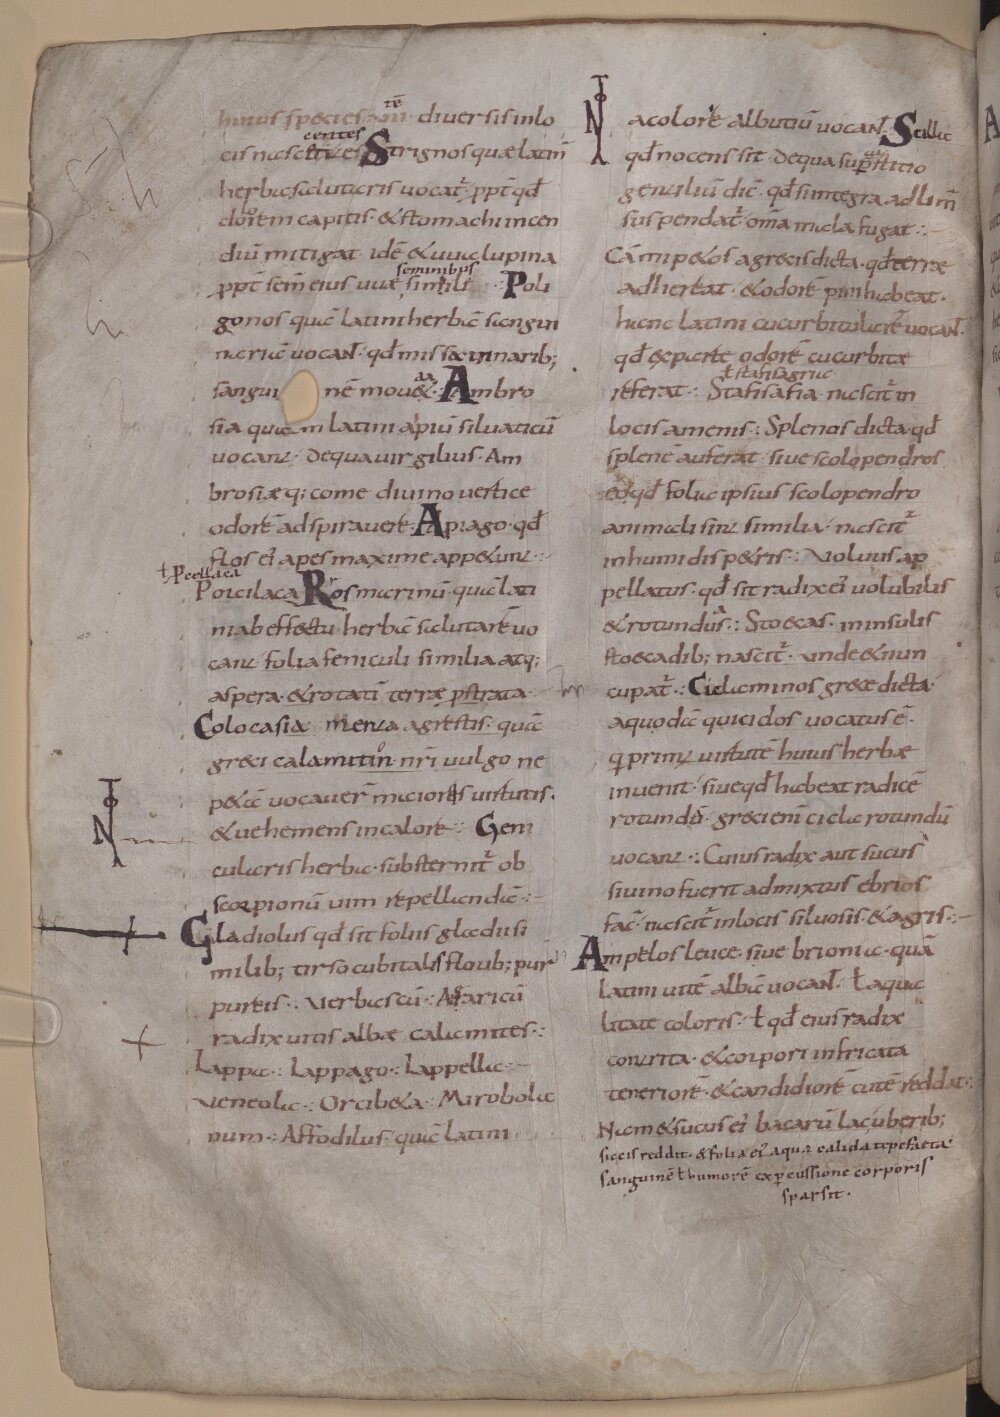 huius species aūt diversis in lo
centes
cis nascetur es Strignos quæ latin̄
herba salutaris uocat᷑ · ꝓpt̄ qđ
dolorem capitis · & stomachi incen
diū mitigat · idē & uua lupina
seminibus
ꝓpt̄ sem̄ eius uuæ similis Poli
gonos quā latini herbā sangui
nariā uocan̄t · qđ missa in narib;
sangui nē moueat · Ambro
sia quam latini apiū siluaticū
uocant · de qua uirgilius · Am
brosiæq; comę diuino uertice
odorē adspirauere · Apiago · qđ
flos ei᷑ apes maxime app&unt ·:
ł Pcellaca
Porcilaca Rosmarinū · quā lati
ni ab effectu herbā salutarē uo
cant folia feniculi similia atq;
aspera · & rotati terræ ꝓstrata ·
Colocasia · menta agrestis · quā
greci calamitin · nr̄i uulgo ne
p&ā uocauer̄ · macioris uirtutis ·
& uehemens in calore ·: Gem
cularis herba · substernit᷑ ob
scorpionū uim repellandā ·:
Gladiolus qđ sit foliis gladii si
milib; tirso cubitalis florib; pur
pureis ·: Verbascū · Assaricū
radix uitis albæ calamites ·:
Lappa ·: Lappago ·: Lappella ·
Veneola ·: Orcib&a ·: Mirobala
num ·: Affodilus · quā latini
N a colore albutiū uocan̄t · Scilla
qđ nocens sit · de qua sup̄stitio
gentiliū dic̄ · qđ si integra ad lim̄
suspendat᷑ · om̄a mala fugat ·:
Camip&os a grecis dicta · qđ terræ
adhereat · & odorē pini habeat ·
hanc latini cucurbitularē uocan̄t ·
qđ ex parte odorē cucurbitæ
ł stafisagria
referat ·: Stafisafia · nascit᷑ in
locis amenis ·: Splenos dicta · qđ
splenē auferat · siue scolopendros
eo qđ folia ipsius scolopendro
animali sint similia · nascit᷑
in humidis p&ris ·: Voluus ap
pellatus · qđ sit radix ei᷑ uolubilis
& rotunda ·: Stoecas · in insulis
stoecadib; nascit᷑ · unde & nun
cupat᷑ ·: Ciclaminos grece dicta ·
a quodā quicidos uocatus ē ·
q' primū uirtutē huius herbæ
inuenit · siue qđ habeat radicē
rotundā · greci enī cicla rotundū
uocant ·: Cuius radix aut sucus
si uino fuerit admixtus ebrios
fac̄ · nascit᷑ in locis siluosis · & agris ·:
Ampelos leuce · siue brionia · quā
latini uitē albā uocan̄t · ł a qua
litate coloris · ł qđ eius radix
contrita · & corpori infricata
tenerorē · & candidiorē cutē reddat ·:
Nam & sucus ei᷑ bacarū lac uberib;
siccis reddit · & folia ei᷑ aqua calida tepefacta
sanguinē ł humorē ex percussione corporis
sparsit ·